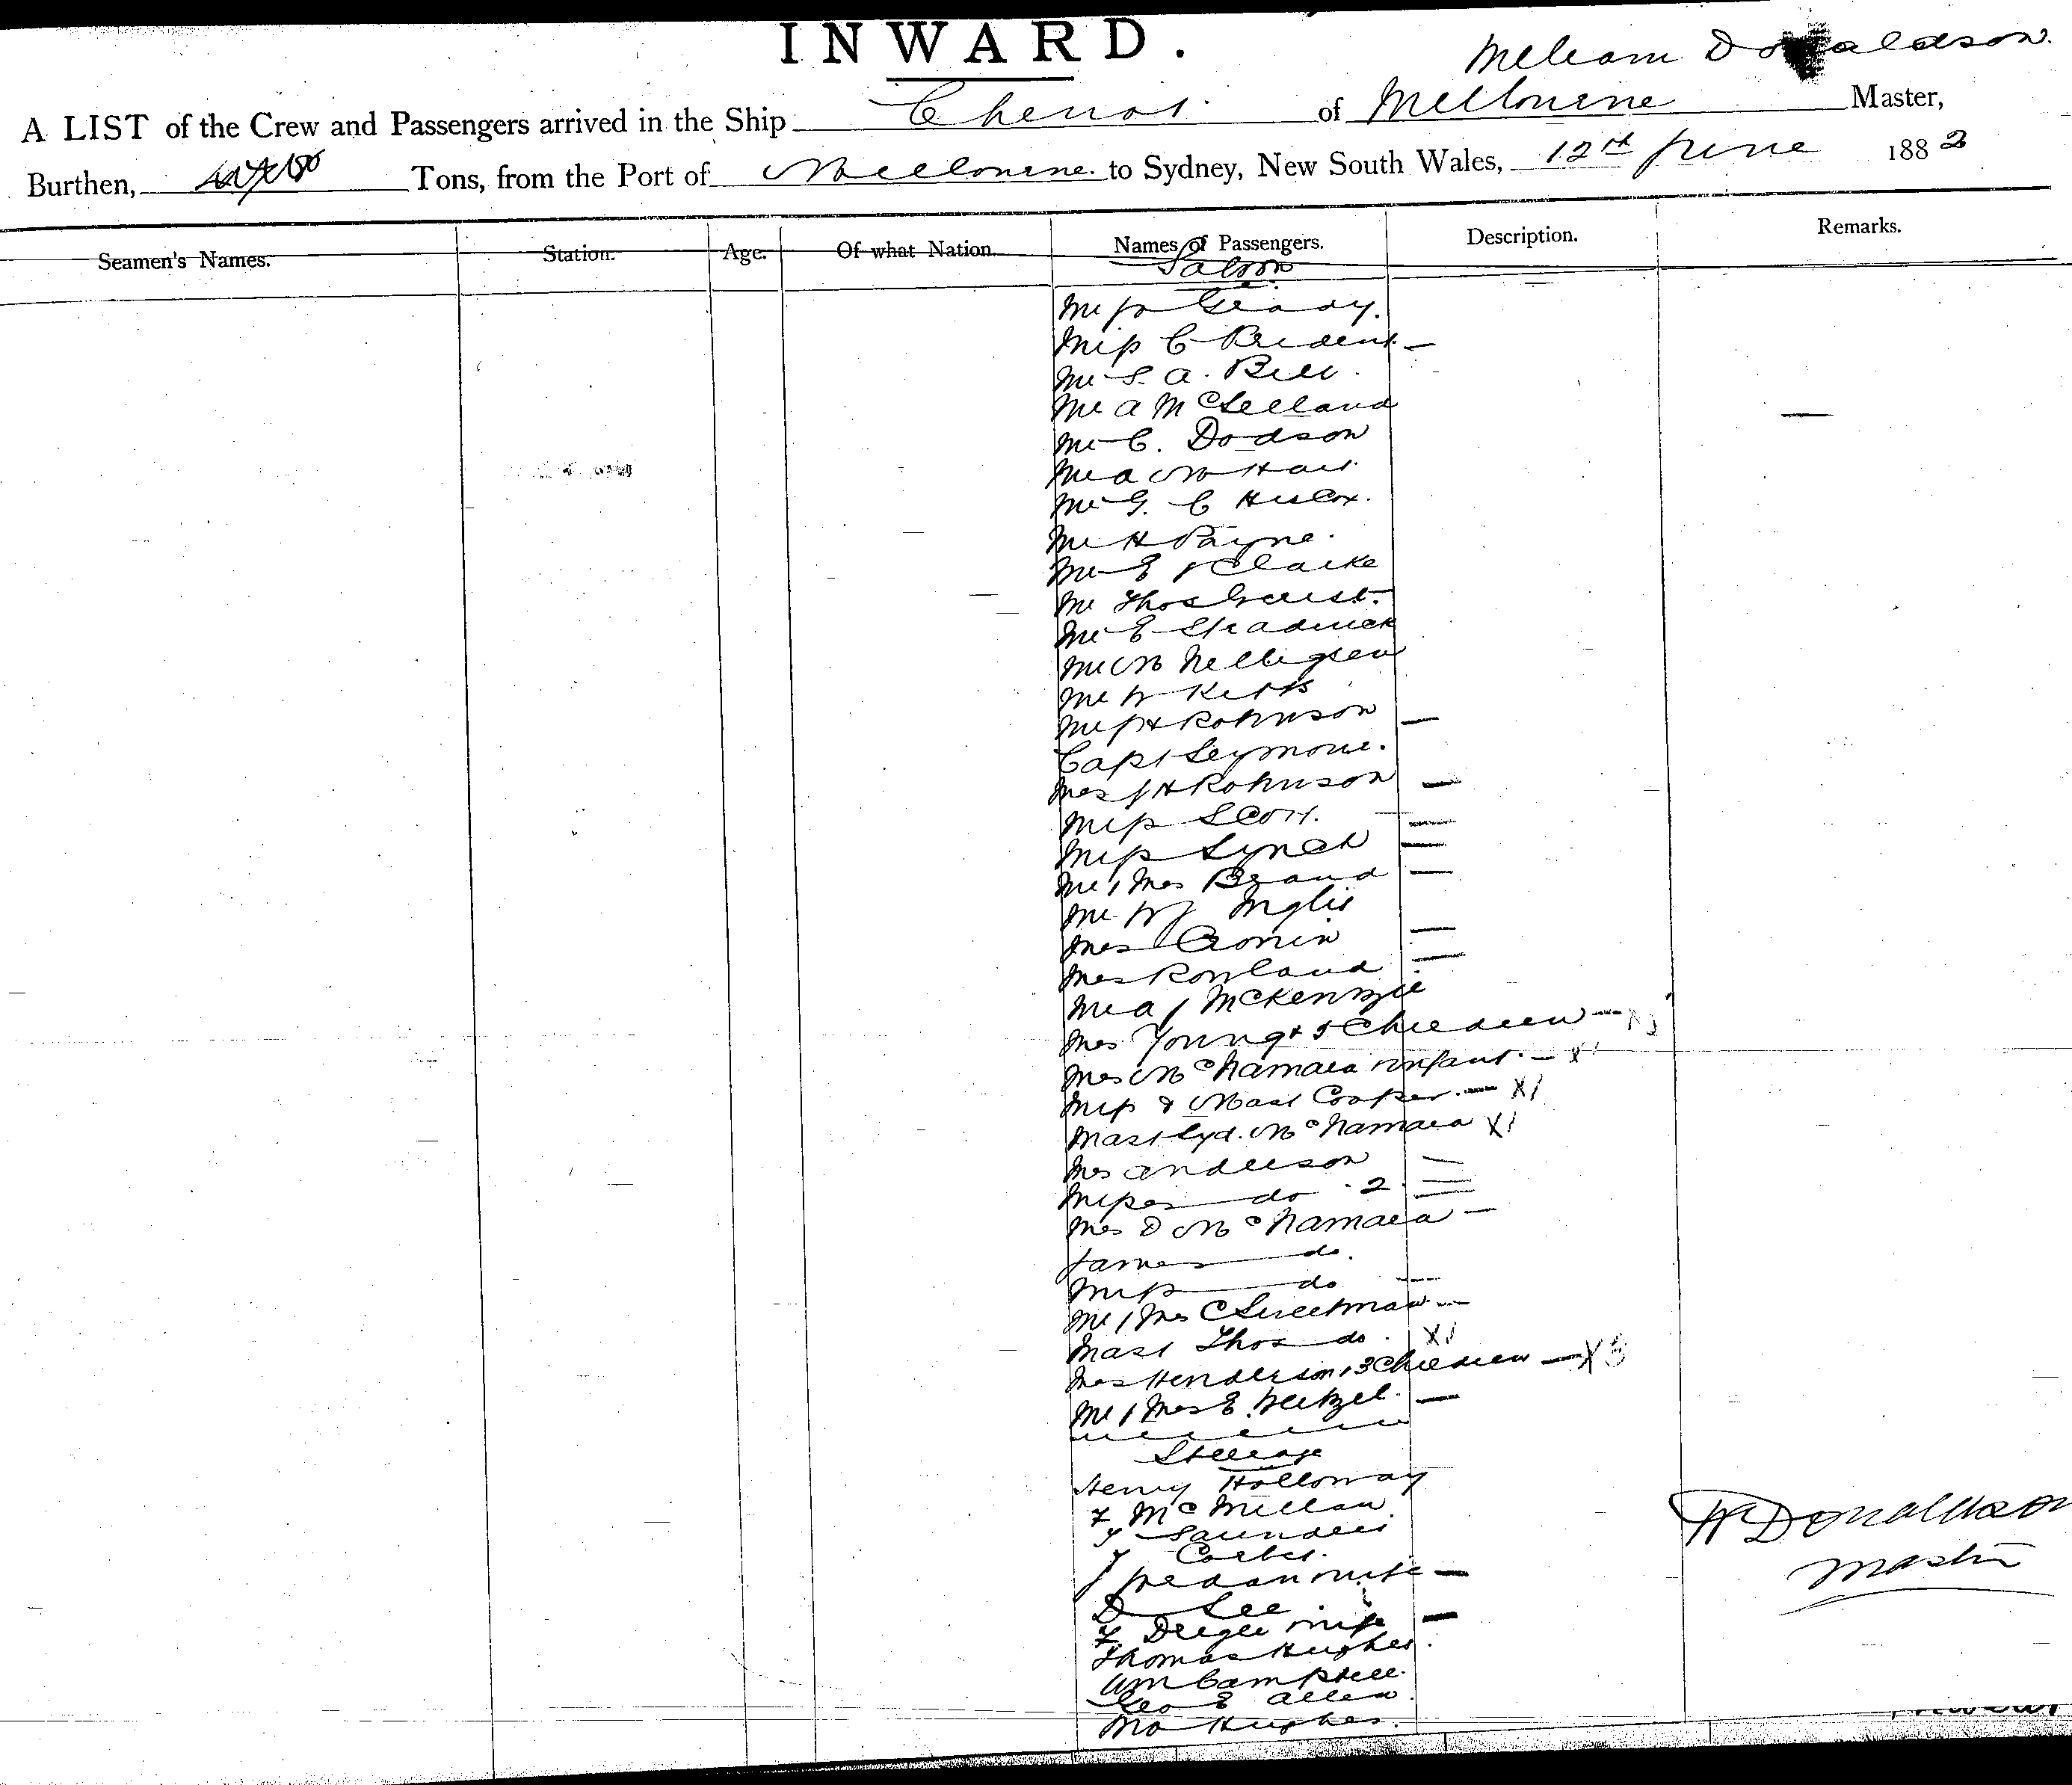 INWARD.
William Donaldson.
A LIST of the Crew and Passengers arrived in the Ship Cheviot. of Melbourne Master,
Burthen, Tons, from the Port of Melbourne. to Sydney, New South Wales, 12th June 1882
Seamen's Names. Station. Age. Of what Nation. Names of Passengers. Description. Remarks.
Saloon
Mr Jo Grady.
Miss C Prident
Mr S. A. Bell.
Mr A McClelland
Mr C. Dodson
Mr A W Hart
Mr G. C Hiscox.
Mr H Payne.
Mr E J Clarke
Mr Thos Guest.
Mr E Stradwick
Mr M Nelligen
Mr W Kitts
Mr J H Robinson
Capt Seymour.
Mrs J H Robinson
Miss Scott.
Miss Lynch
Mr & Mrs Brand
Mr W J Inglis
Mrs Cronin
Mrs Rowland
Mr A J McKenzie
Mrs Young & 5 Children — X5
Mrs McNamara & infant. — X1
Miss & Mast Cooper. — X1
Mast Cyd. McNamara X1
Mrs Anderson
Misses do 2
Mrs D McNamara
James do.
Miss do
Mr & Mrs C Sweetman
Mast Thos do. X1
Mrs Henderson & 3 Children — X3
Mr & Mrs E. Wetzel.
Steerage
Henry Holloway
F McMillan
J Saunders
J Corbet.
J & wife
D Lee
F & wife
Thomas Hughes.
Wm Campbell.
Geo E Allen.
Mo Hughes.
W Donaldson
Master